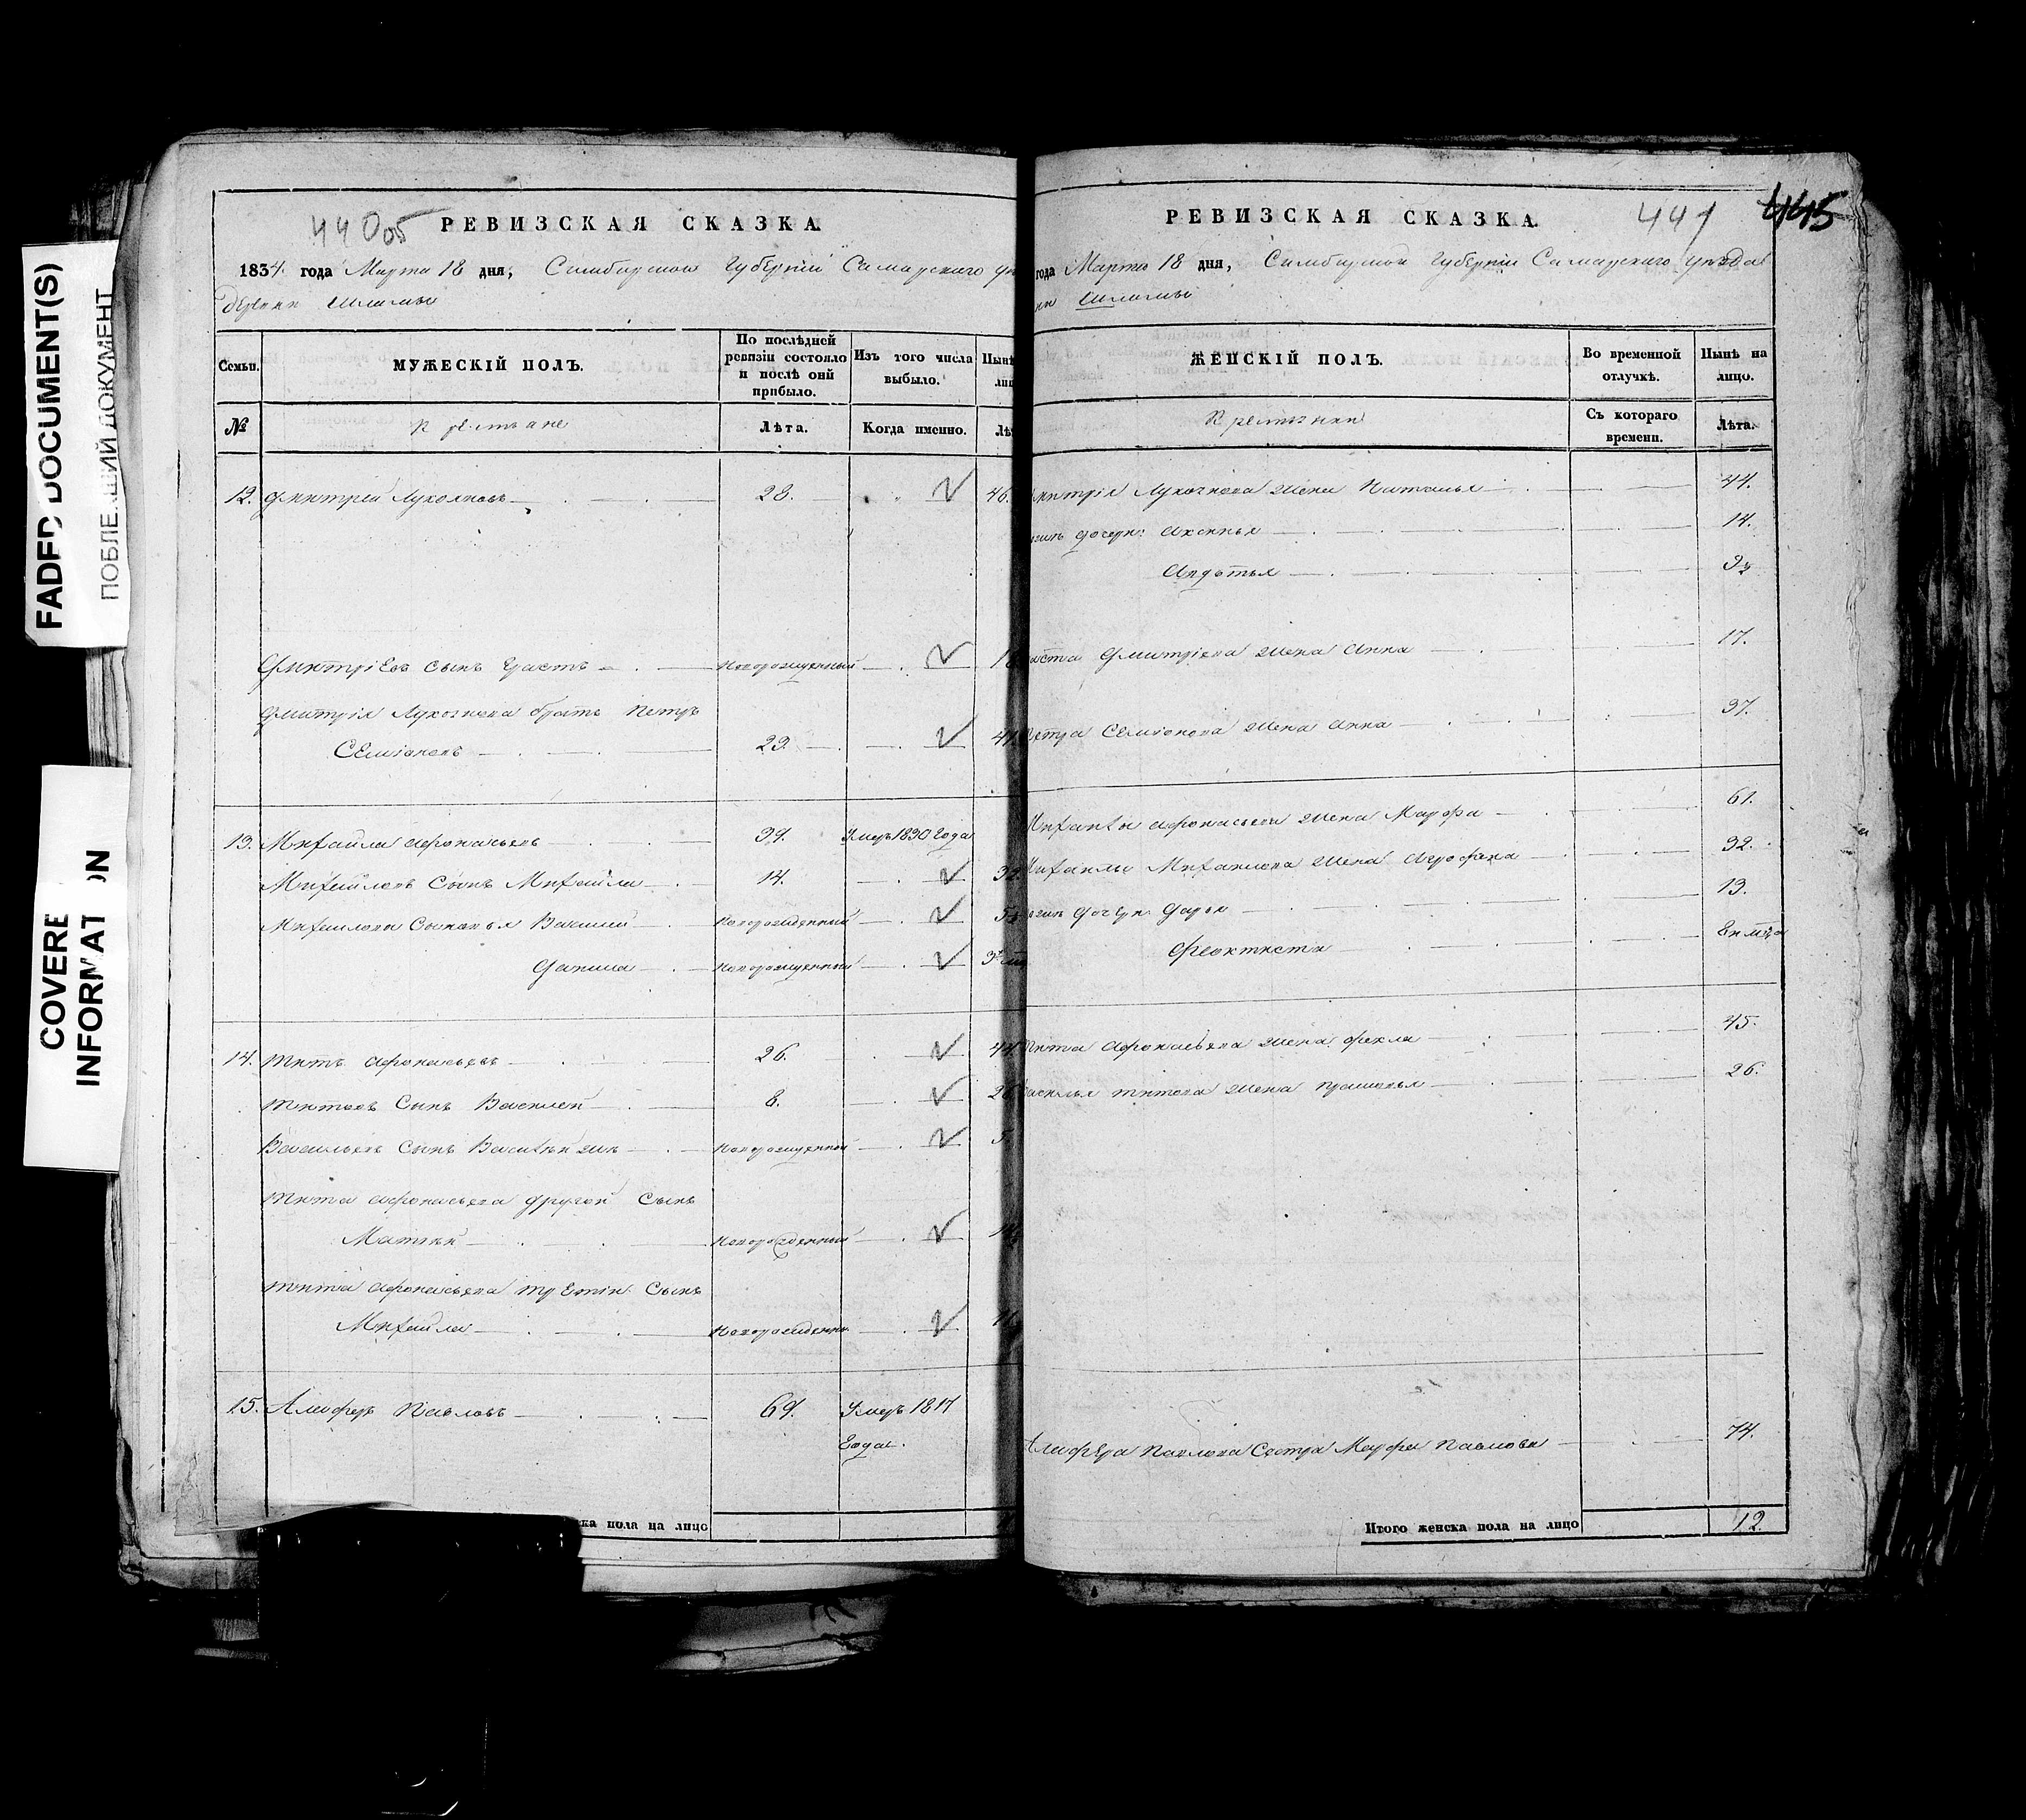 FADED DOCUMENT(S)
COVERED
INFORMATION
440об
РЕВИЗСКАЯ СКАЗКА.
1834 года Марта 18 дня, Симбирской Губернии Самарского
Семьи.
МУЖЕСКІЙ ПОЛЪ.
По послѣдней
ревизіи состояло
и послѣ оной
прибыло.
Изъ того числа
выбыло.
№
Крестьяне
Лѣта.
Когда именно.
12. Дмитрей Лукояновъ 28. 46.
Дмитріевъ сынъ Уастъ Новорожденный
Дмитрія Лукоянова братъ Петръ
Семіоновъ 23.
13. Михайла Афонасьевъ 39. Умеръ 1830 Года
Михайловъ Сынъ Михайла 14.
Михайловы Сыновья Василій Новорожденный
Данила Новорожденный
14. Титъ Афонасьевъ 26.
Титовъ Сынъ Василей 8.
Васильевъ Сынъ Новорожденный 5
Тита Афонасьева другой Сынъ
Матвѣй Новорожденный
Тита Афонасьева третій Сынъ
Михайла
15. Алферъ Павловъ 69. Умеръ 1817
Года.
пола на лицо
441
445
РЕВИЗСКАЯ СКАЗКА.
года Марта 18 дня, Симбирской Губерніи Самарского уѣзда
ЖЕНСКІЙ ПОЛЪ.
Во временной
отлучкѣ.
Нынѣ на
лицо.
Крестьянки
Съ котораго
времени.
Лѣта.
Лукоянова жена Наталья 44.
дочери: Аксинья 14.
Авдотья
Дмитріева жена Анна 17.
Петра Семіонова жена Анна 37.
Афонасьева жена Марфа 61.
Михайлы Михайлова жена Аграфена 32.
дочери Дарья 13.
Феоктиста
Тита Афонасьева жена Фекла 45.
Василья Титова жена Прасковья 26.
Алфера Павлова Сестра Марфа Павлова 74.
Итого женска пола на лицо 12.